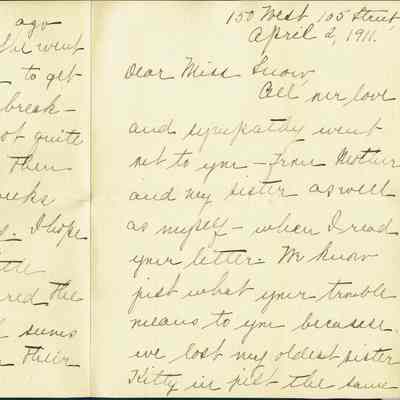 ago
She went
to get
break-
not quite
Then
weeks
s. I hope
ttle
red the
seems
their
150 West 105 Street
April 2, 1911.
Dear Miss Snow,
All our love
and sympathy went
out to you - from Mother
and my sister as well
as myself - when I read
your letter. We know
just what your trouble
means to you because
we lost my oldest sister
Kitty in just the same